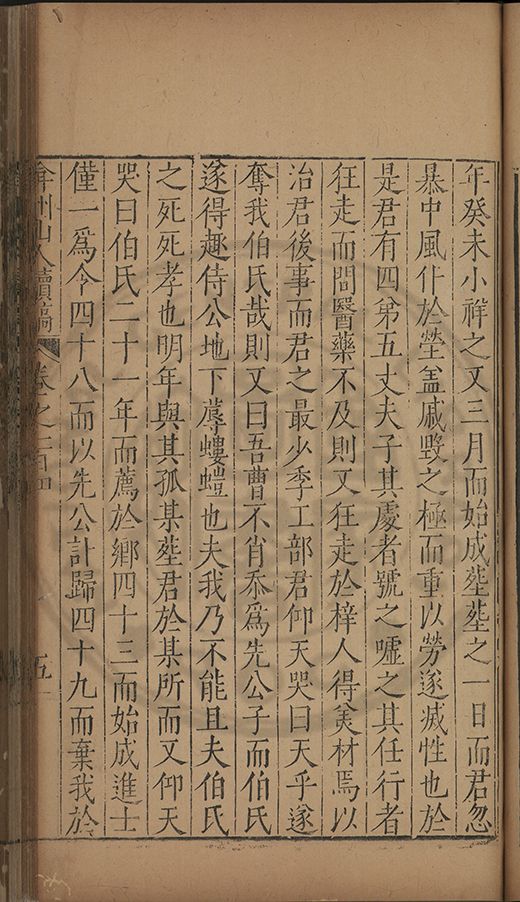 年癸未小祥之又三月而始成塟塟之一日而君忽
暴中風仆於塋盖戚毀之極而重以勞遂滅性也於
是君有四弟五丈夫子其處者號之噓之其任行者
狂走而問醫藥不及則又狂走於梓人得美材焉以
治君後事而君之最少季工部君仰天哭曰天乎遂
奪我伯氏哉則又曰吾曹不肖忝爲先公子而伯氏
遂得趣侍公地下蓐螻螘也夫我乃不能且夫伯氏
之死死孝也明年與其孤某塟君於某所而又仰天
哭曰伯氏二十一年而薦於鄉四十三而始成進士
僅一爲令四十八而以先公計歸四十九而棄我於
弇州山人續稿 卷之一百四 五